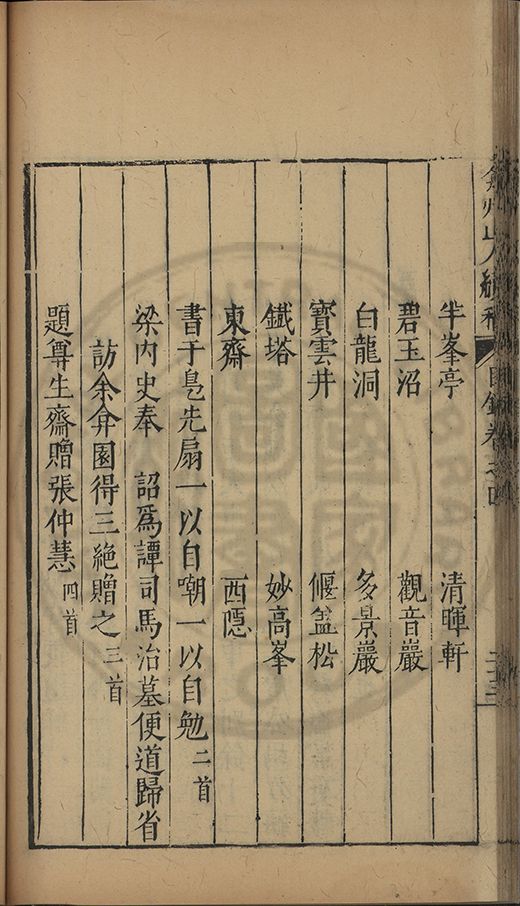 弇州山人續稿 目錄卷之四
半峯亭 清暉軒
碧玉沼 觀音巖
白龍洞 多景巖
寶雲井 偃盖松
鐵塔 妙高峯
東齋 西隱
書于鳧先扇一以自嘲一以自勉二首
梁内史奉 詔爲譚司馬治墓便道歸省
訪余弇園得三絕贈之三首
題尊生齋贈張仲慧四首